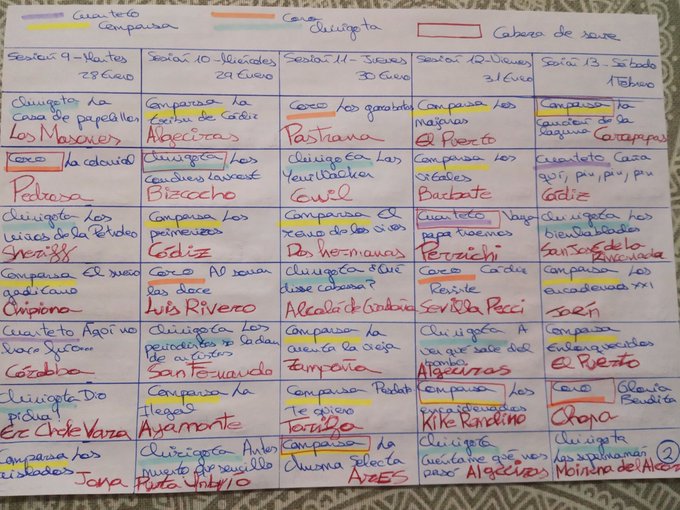 Cuarteto
Comparsa
Coro
Chirigota
Cabeza de serie
Sesión 9 - Martes
28 Enero
Sesión 10 - Miércoles
29 Enero
Sesión 11 - Jueves
30 Enero
Sesión 12 - Viernes
31 Enero
Sesión 13 - Sábado
1 Febrero
Chirigota La
Casa de papelillos
Los Masones
Comparsa La
tribu de Cádiz
Algeciras
Coro Los garabatos
Pastrana
Comparsa Los
majaras
El Puerto
Comparsa La
canción de la
laguna Carapapas
Coro La colonial
Pedrosa
Chirigota Los
Bizcocho
Chirigota Los
Yeni Walker
Conil
Comparsa Los
vitales
Barbate
Cuarteto Cará
quí, piu, piu, piu
Cádiz
Chirigota Los
de la Petróleo
Sheriff
Comparsa Los
primerizos
Cádiz
Comparsa El
reino de los vivos
Dos hermanas
Cuarteto Vaya
papa traemos
Perrichi
Chirigota Los
bienhablados
San José de la
Rinconada
Comparsa El sueño
gaditano
Chipiona
Coro Al sonar
las doce
Luis Rivero
Chirigota ¿Qué
disse cabassa?
Alcalá de Guadaíra
Coro Cádiz
Resiste
Sevilla Pecci
Comparsa Los
encadenaos XXI
Jaén
Cuarteto Aquí no
hace frío...
Córdoba
Chirigota Los
periodistas se la dan
de artistas
San Fernando
Comparsa La
cuenta la vieja
Zampoña
Chirigota A
ver qué sale del
bombo
Algeciras
Comparsa Los
enloquecidos
El Puerto
Chirigota Dio
picha
Er Chele Vara
Comparsa La
Ilegal
Ayamonte
Comparsa
Te quiero
Tarifa
Comparsa Los
encaidenados
Kike Remolino
Coro Gloria
Bendita
Chapa
Comparsa Los
aislados
Jona
Chirigota Antes
muerto que sencillo
Punta Umbrío
Comparsa La
chusma Selecta
Ares
Chirigota
Cuéntame qué nos
pasó Algeciras
Chirigota
Las
Mairena del Alcor
2